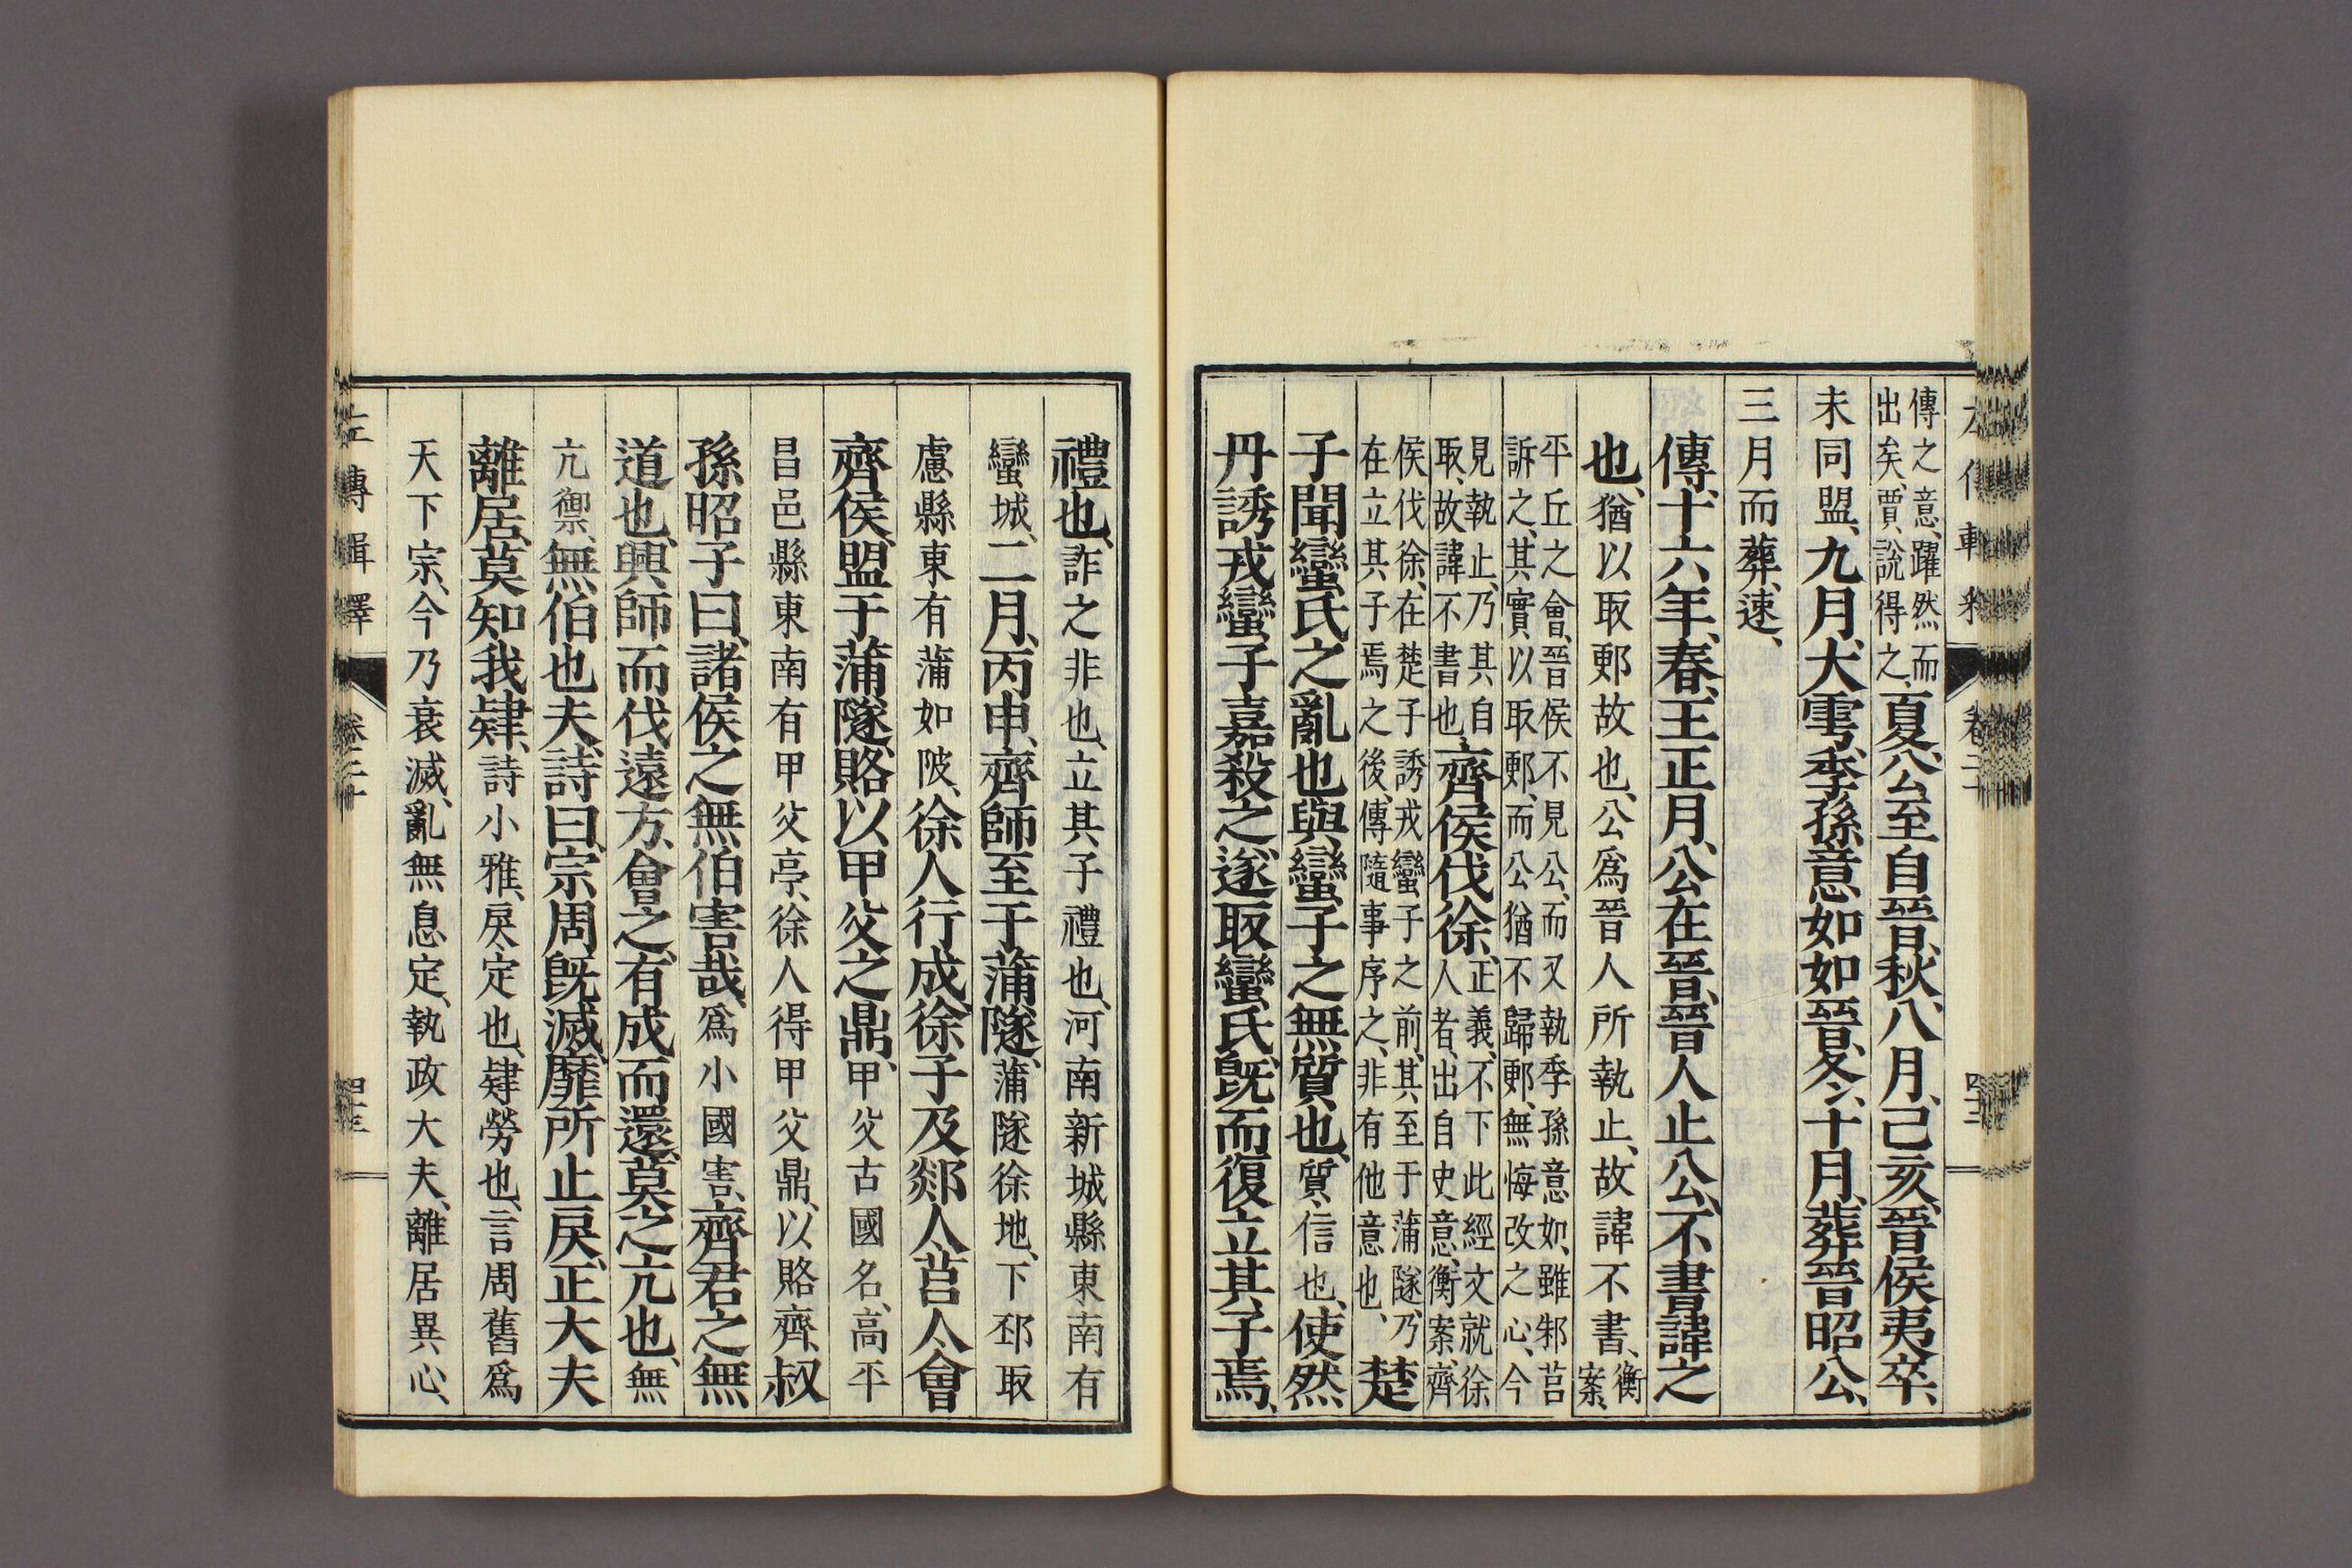 傳之意、躍然而
出矣、賈說得之、
夏、公至自晉、秋、八月、己亥、晉侯夷卒、
未同盟、九月、大雩、季孫意如如晉、冬、十月、葬晉昭公、
三月而葬、速、
傳、十六年、春、王正月、公在晉、晉人止公、不書、諱之
也、猶以取郠故也、公爲晉人所執止、故諱不書、衡
案、
平丘之會、晉侯不見公、而又執季孫意如、雖邾莒
訴之、其實以取郠、而公猶不歸郠、無悔改之心、今
見執止、乃其自
取、故諱不書也、
齊侯伐徐、
正義、不下此經文就徐
人者、出自史意、衡案、齊
侯伐徐、在楚子誘戎蠻子之前、其至于蒲隧、乃
在立其子焉之後、傳隨事序之、非有他意也、
楚
子聞蠻氏之亂也、與蠻子之無質也、質、信也、使然
丹誘戎蠻子嘉殺之、遂取蠻氏、既而復立其子焉、
禮也、詐之非也、立其子禮也、河南新城縣東南有
蠻城、二月、丙申、齊師至于蒲隧、蒲隧徐地、下邳取
慮縣東有蒲如陂、徐人行成、徐子及郯人莒人會
齊侯、盟于蒲隧、賂以甲父之鼎、甲父古國名、高平
昌邑縣東南有甲父亭、徐人得甲父鼎、以賂齊、叔
孫昭子曰、諸侯之無伯害哉、爲小國害、齊君之無
道也、興師而伐遠方、會之、有成而還、莫之亢也、無
亢禦、無伯也夫、詩曰、宗周既滅、靡所止戾、正大夫
離居、莫知我肄、詩小雅、戾、定也、肄、勞也、言周舊爲
天下宗、今乃衰滅、亂無息定、執政大夫、離居異心、
左傳輯釋
卷二十
四十三